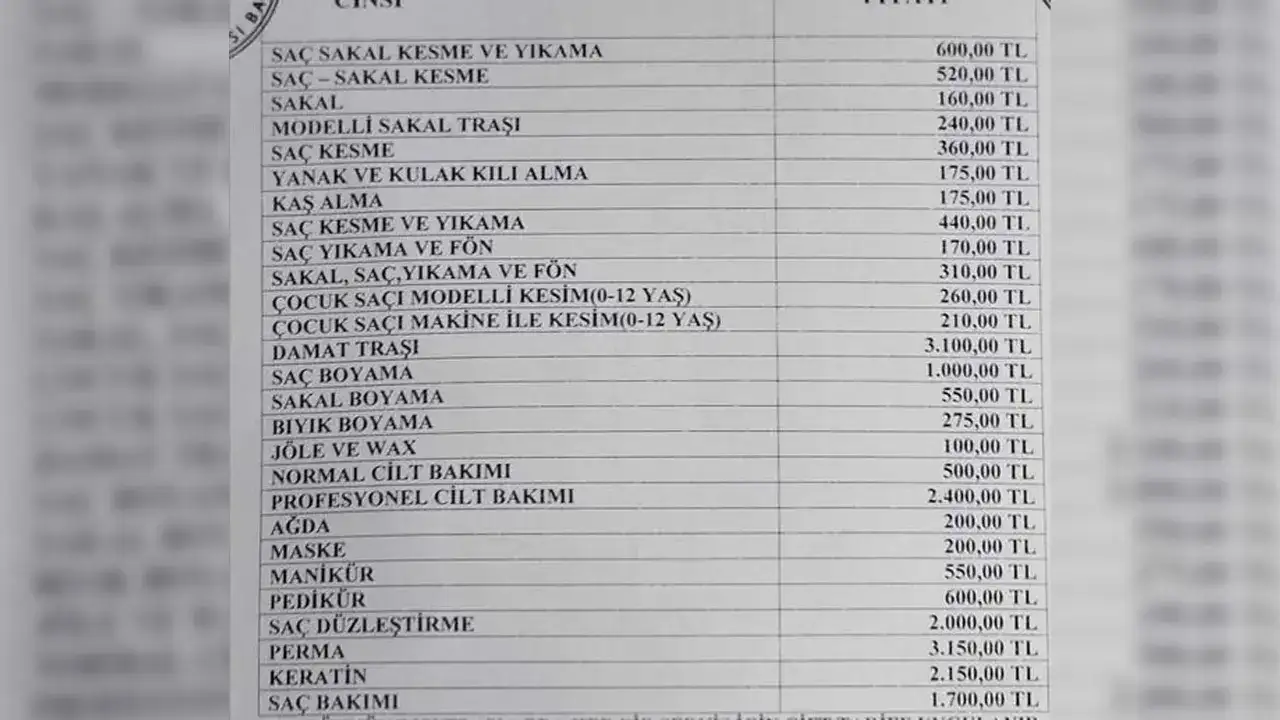 CİNSİ FİYATI
SI BA
SAÇ SAKAL KESME VE YIKAMA 600,00 TL
SAÇ – SAKAL KESME 520,00 TL
SAKAL 160,00 TL
MODELLİ SAKAL TRAŞI 240,00 TL
SAÇ KESME 360,00 TL
YANAK VE KULAK KILI ALMA 175,00 TL
KAŞ ALMA 175,00 TL
SAÇ KESME VE YIKAMA 440,00 TL
SAÇ YIKAMA VE FÖN 170,00 TL
SAKAL, SAÇ,YIKAMA VE FÖN 310,00 TL
ÇOCUK SAÇI MODELLİ KESİM(0-12 YAŞ) 260,00 TL
ÇOCUK SAÇI MAKİNE İLE KESİM(0-12 YAŞ) 210,00 TL
DAMAT TRAŞI 3.100,00 TL
SAÇ BOYAMA 1.000,00 TL
SAKAL BOYAMA 550,00 TL
BIYIK BOYAMA 275,00 TL
JÖLE VE WAX 100,00 TL
NORMAL CİLT BAKIMI 500,00 TL
PROFESYONEL CİLT BAKIMI 2.400,00 TL
AĞDA 200,00 TL
MASKE 200,00 TL
MANİKÜR 550,00 TL
PEDİKÜR 600,00 TL
SAÇ DÜZLEŞTİRME 2.000,00 TL
PERMA 3.150,00 TL
KERATİN 2.150,00 TL
SAÇ BAKIMI 1.700,00 TL